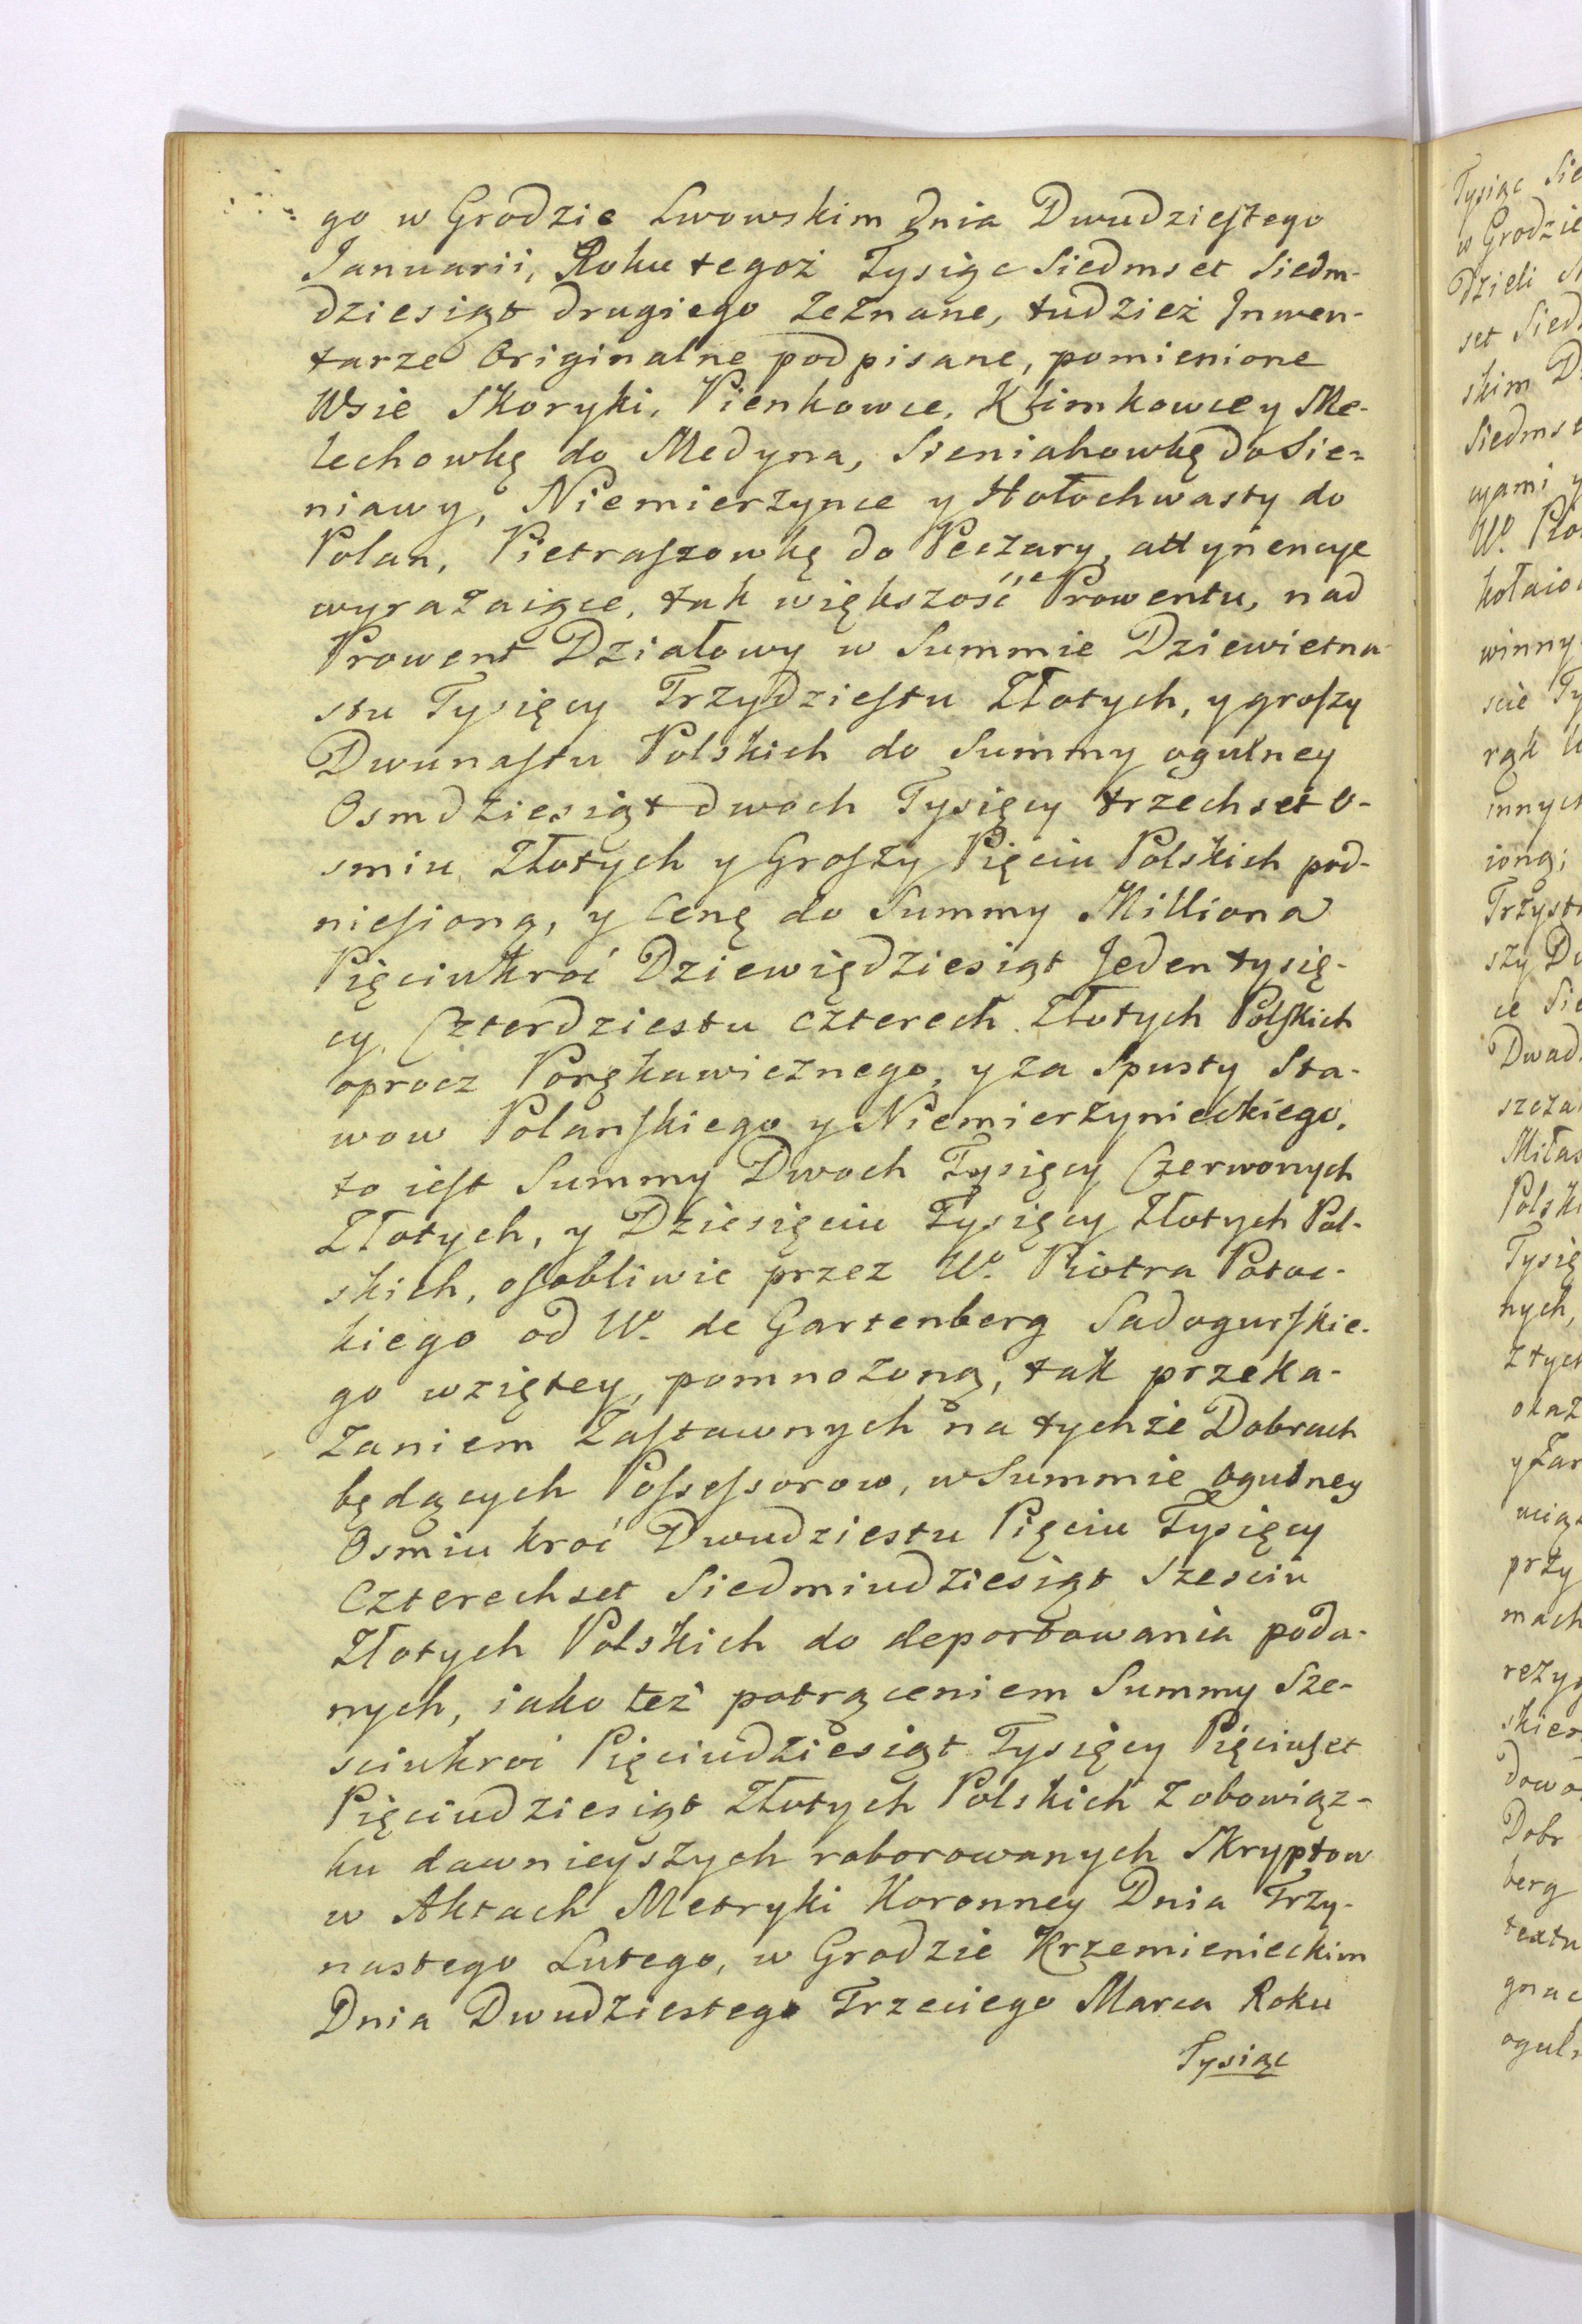 go w Grodzie Lwowskim dnia Dwudzieſtego
Januarii, Roku tegoż Tysiąc Siedmset Siedm-
dziesiąt drugiego Zeznane, tudzież Inwen-
tarze Originalne podpisane, pomienione
Wsie Skoryki, Pienkowce, Klimkowce y Me-
lechowkę do Medyna, Sieniahowkę do Sie-
niawy, Niemierzynce y Hołochwasty do
Polan, Pietraſzowkę do Peczary, attynencye
wyrazaiące, tak większość Prowentu, nad
Prowent Działowy w Summie Dziewietna-
stu Tysięcy Trzydzieſtu Złotych, y groſzy
Dwunaſtu Polskich do Summy ogulney
Osmdziesiąt dwoch Tysięcy trzechset o-
smiu Złotych y Groſzy Pięciu Polskich pod-
nieſioną, y Cenę do Summy Milliona
Pięciukroć Dziewiędziesiąt Jeden tysię-
cy, Czterdziestu czterech Złotych Polſkich
oprocz Porękawicznego, y za Spusty Sta-
wow Polanſkiego y Niemierzynieckiego,
to ieſt Summy Dwoch Tysięcy Czerwonych
Złotych, y Dziesięciu Tysięcy Złotych Pol-
skich, oſobliwie przez W° Piotra Potoc-
kiego od W° de Gartenberg Sadogurſkie-
go wziętey, pomnożoną, tak przeka-
zaniem Zaſtawnych na tychże Dobrach
będących Poſseſsorow, w Summie ogulney
Osmiu kroć Dwudziestu Pięciu Tysięcy
Czterechset Siedmiudziesiąt Szesciu
Złotych Polskich do deportowania poda-
nych, iako też potrąceniem Summy Sze-
sciukroć Pięciudziesiąt Tysięcy Pięciuſet
Pięciudziesiąt Złotych Polskich z obowiąz-
ku dawnieyszych roborowanych Skryptow
w Aktach Metryki Koronney Dnia Trzy-
nastego Lutego, w Grodzie Krzemienieckim
Dnia Dwudziestego Trzeciego Marca Roku
Tysiąc
Tysiąc Sie
w Grodzie
dzieli
set Sied
skim D
Siedmse
cyami y
W° Pio
kołaio
winny
scie Ty
rąk
innych
ioną;
Trzyst
szy Dw
ce Sie
Dwad
szcza
Miłas
Polsk
Tysię
nych,
z tych
okaz
przy
mach
rezy
skie
dowo
Dobr
berg
textu
gnac
oguln